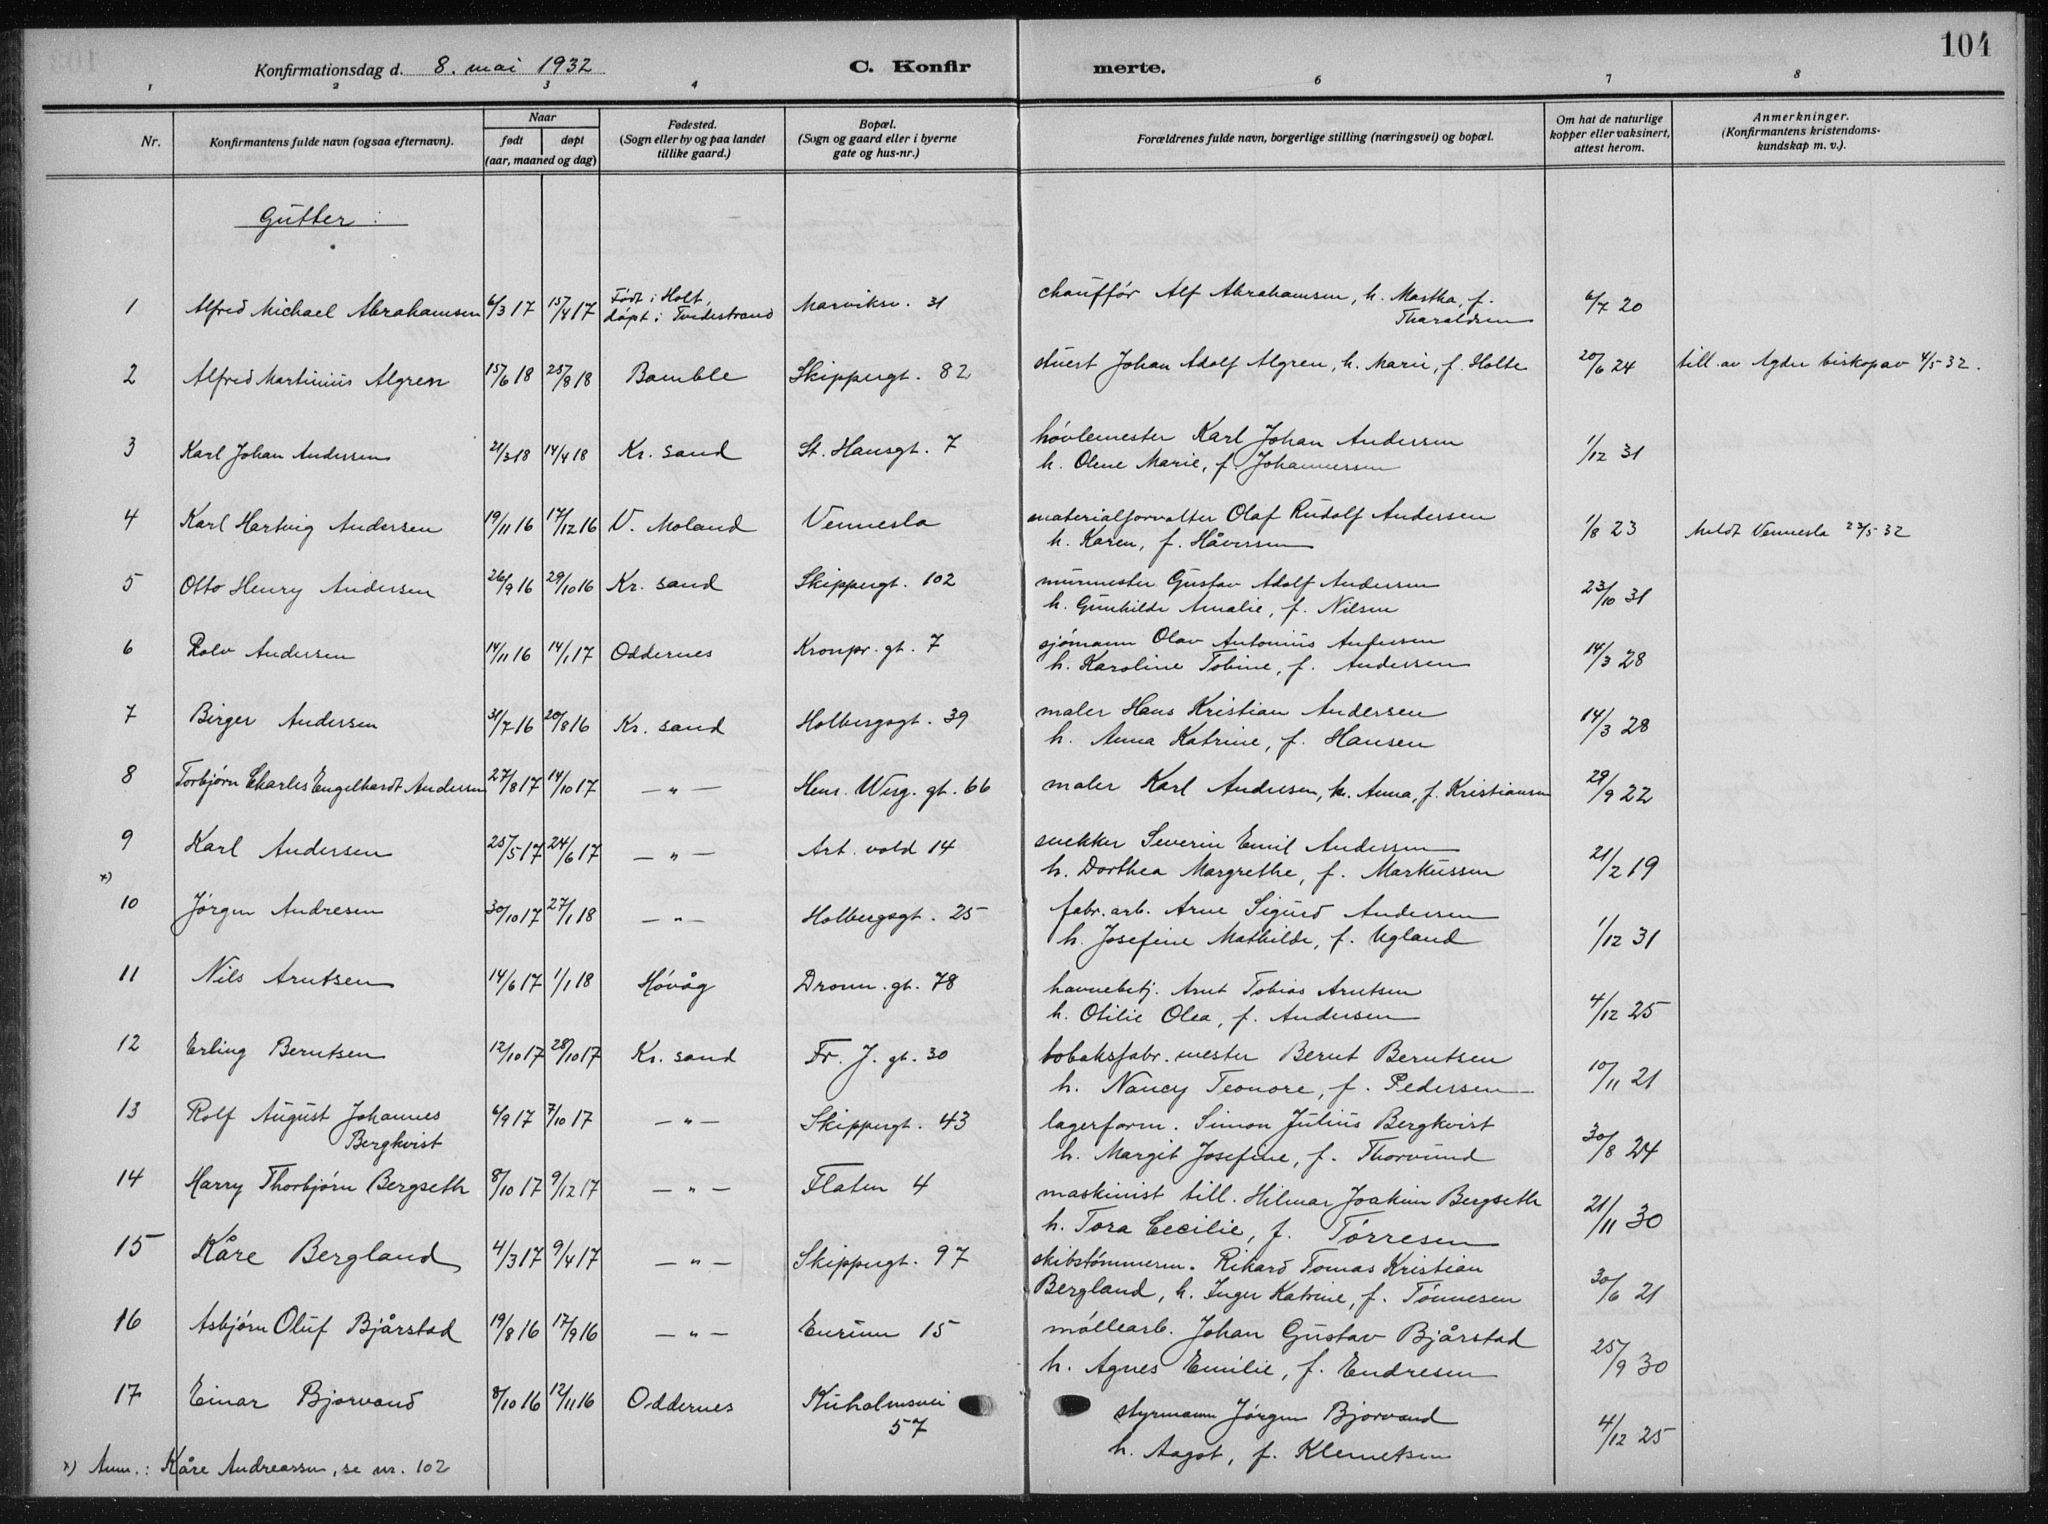 104
Konfirmationsdag d. 8. mai 1932 C. Konfirmerte.
1 2 3 4 5 6 7 8
Nr. Konfirmantens fulde navn (ogsaa efternavn). Naar født døpt (aar, maaned og dag) Fødested. (Sogn eller by og paa landet tillike gaard.) Bopæl. (Sogn og gaard eller i byerne gate og hus-nr.) Forældrenes fulde navn, borgerlige stilling (næringsvei) og bopæl. Om hat de naturlige kopper eller vaksinert, attest herom. Anmerkninger. (Konfirmantens kristendoms-kundskap m. v.).
Gutter:
1 Alfred Michael Abrahamsen 6/3 17 15/4 17 Født i Holt, døpt i Tvedestrand Marviksv. 31 chauffør Alf Abrahamsen, h. Martha, f. Tharaldsen 6/7 20
2 Alfred Martinius Algren 15/6 18 25/8 18 Bamble Skippergt. 82 stuert Johan Adolf Algren, h. Marie, f. Holte 20/6 24 till. av Agder biskop av 4/5 32.
3 Karl Johan Andersen 21/3 18 14/4 18 Kr. sand St. Hansgt. 7 høvlemester Karl Johan Andersen
h. Olene Marie, f. Johannessen 1/12 31
4 Karl Hartvig Andersen 19/11 16 17/12 16 V. Moland Vennesla materialforvalter Olaf Rudolf Andersen
h. Karen, f. Håversen 1/8 23 Meldt Vennesla 23/5 32
5 Otto Henry Andersen 26/9 16 29/10 16 Kr. sand Skippergt. 102 murmester Gustav Adolf Andersen
h. Gunhilde Amalie, f. Nilsen 23/10 31
6 Rolv Andersen 14/11 16 14/1 17 Oddernes Kronpr. gt. 7 sjømann Olav Antonius Andersen
h. Karoline Tobine, f. Andersen 14/3 28
7 Birger Andersen 31/7 16 20/8 16 Kr. sand Holbergsgt. 39 maler Hans Kristian Andersen
h. Anna Katrine, f. Hansen 14/3 28
8 Torbjørn Charles Engelhardt Andersen 27/8 17 14/10 17 — " — Henr. Werg. gt. 66 maler Karl Andersen, h. Anna, f. Kristiansen 29/9 22
9 Karl Andersen 25/5 17 24/6 17 — " — Art. vold 14 snekker Severin Emil Andersen
h. Dorthea Margrethe, f. Markussen 21/2 19
x)
10 Jørgen Andresen 30/10 17 27/1 18 — " — Holbergsgt. 25 fabr. arb. Arne Sigurd Andersen
h. Josefine Mathilde, f. Ugland 1/12 31
11 Nils Arntsen 14/6 17 1/1 18 Høvåg Dronn. gt. 78 havnebetj. Arnt Tobias Arntsen
h. Otilie Olea, f. Andersen 4/12 25
12 Erling Berntsen 12/10 17 28/10 17 Kr. sand Fr. J. gt. 30 tobaksfabr. mester Bernt Berntsen
h. Nancy Teonore, f. Pedersen 10/11 21
13 Rolf August Johannes Bergkvist 6/9 17 7/10 17 — " — Skippergt. 43 lagerform. Simon Julius Bergkvist
h. Margit Josefine, f. Thorvund 30/8 24
14 Harry Thorbjørn Bergseth 8/10 17 9/12 17 — " — Flaten 4 maskinist till. Hilmar Joakim Bergseth
h. Tora Cecilie, f. Tørresen 21/11 30
15 Kåre Bergland 4/3 17 9/4 17 — " — Skippergt. 97 skibstømmerm. Rikard Tomas Kristian
Bergland, h. Inger Katrine, f. Tønnesen 30/6 21
16 Asbjørn Oluf Bjårstad 19/8 16 17/9 16 — " — Enrum 15 møllearb. Johan Gustav Bjårstad
h. Agnes Emilie, f. Endresen 25/9 30
17 Einar Bjorvand 8/10 16 12/11 16 Oddernes Kuholmsvei 57 styrmann Jørgen Bjorvand
h. Aagot, f. Klemetsen 4/12 25
x) Anm.: Kåre Andreassen, se nr. 102